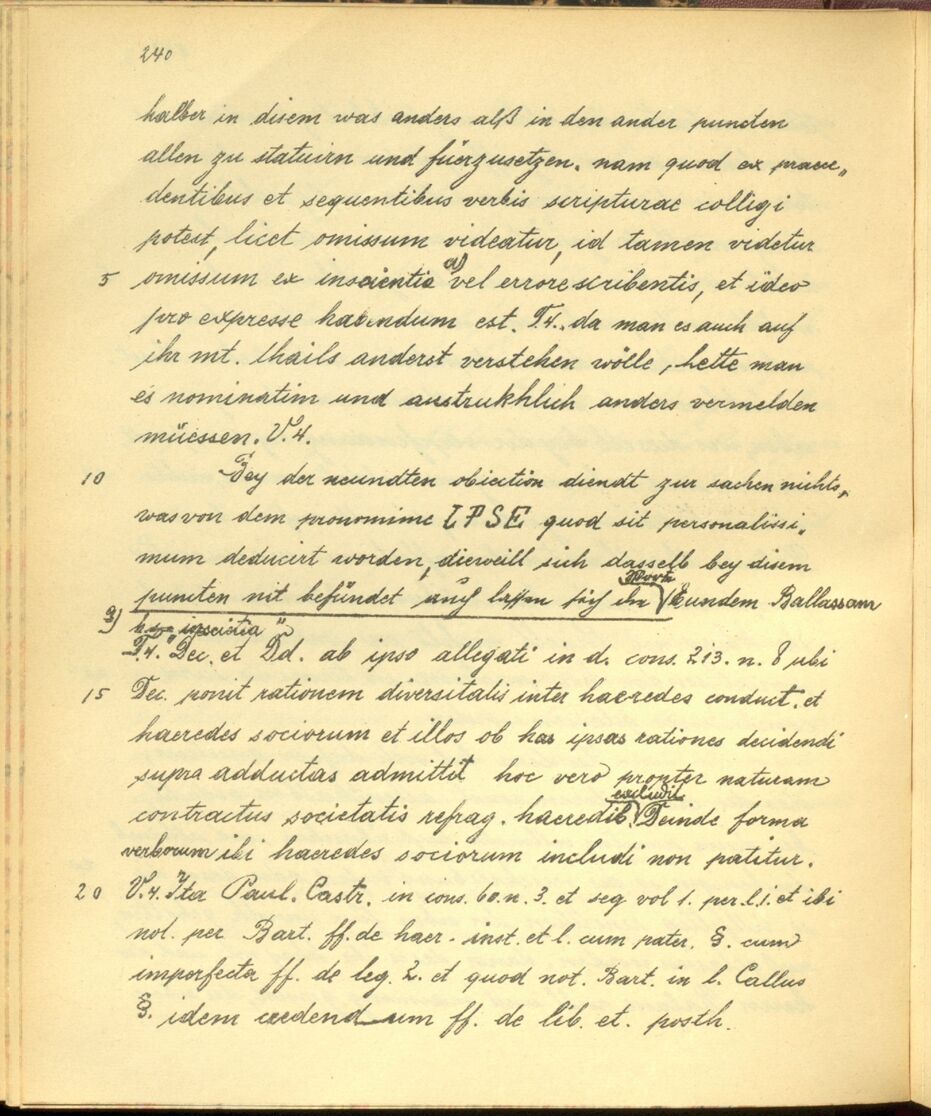 240
halber in disem was anders alß in den ander puncten
allen zu statuirn und fürzusetzen. nam quod ex praece„
dentibus et sequentibus verbis scripturae colligi
potest, licet omissum videatur, id tamen videtur
5 omissum ex inscientia a) vel errore scribentis, et ideo
pro expresse habendum est. T.4. da man es auch auf
ihr mt. thails anderst verstehen wölle, hette man
es nominatim und austrukhlich anders vermelden
müessen. V.4.
10 Bey der neundten obiection diendt zur sachen nichts,
was von dem pronomime IPSE quod sit personalissi„
mum deducirt worden, dieweill sich dasselb bey disem
puncten nit befündet auch lassen sich die Wort Eundem Ballassam
a) inscitia"
T.4. Dec. et Dd. ab ipso allegati in d. cons. 213. n. 8 ubi
15 Dec. ponit rationem diversitatis inter haeredes conduct. et
haeredes sociorum et illos ob has ipsas rationes decidendi
supra adductas admittit hoc vero propter naturam
contractus societatis refrag. haeredib. excludit Deinde forma
verborum ibi haeredes sociorum includi non patitur.
20 V.4. Ita Paul. Castr. in cons. 60. n. 3. et seq vol 1. per l. i. et ibi
not. per Bart. ff. de haer. inst. et l. cum pater. §. cum
imperfecta ff. de leg. 2. et quod not. Bart. in l. Callus
§. idem credendum ff. de lib. et. posth.